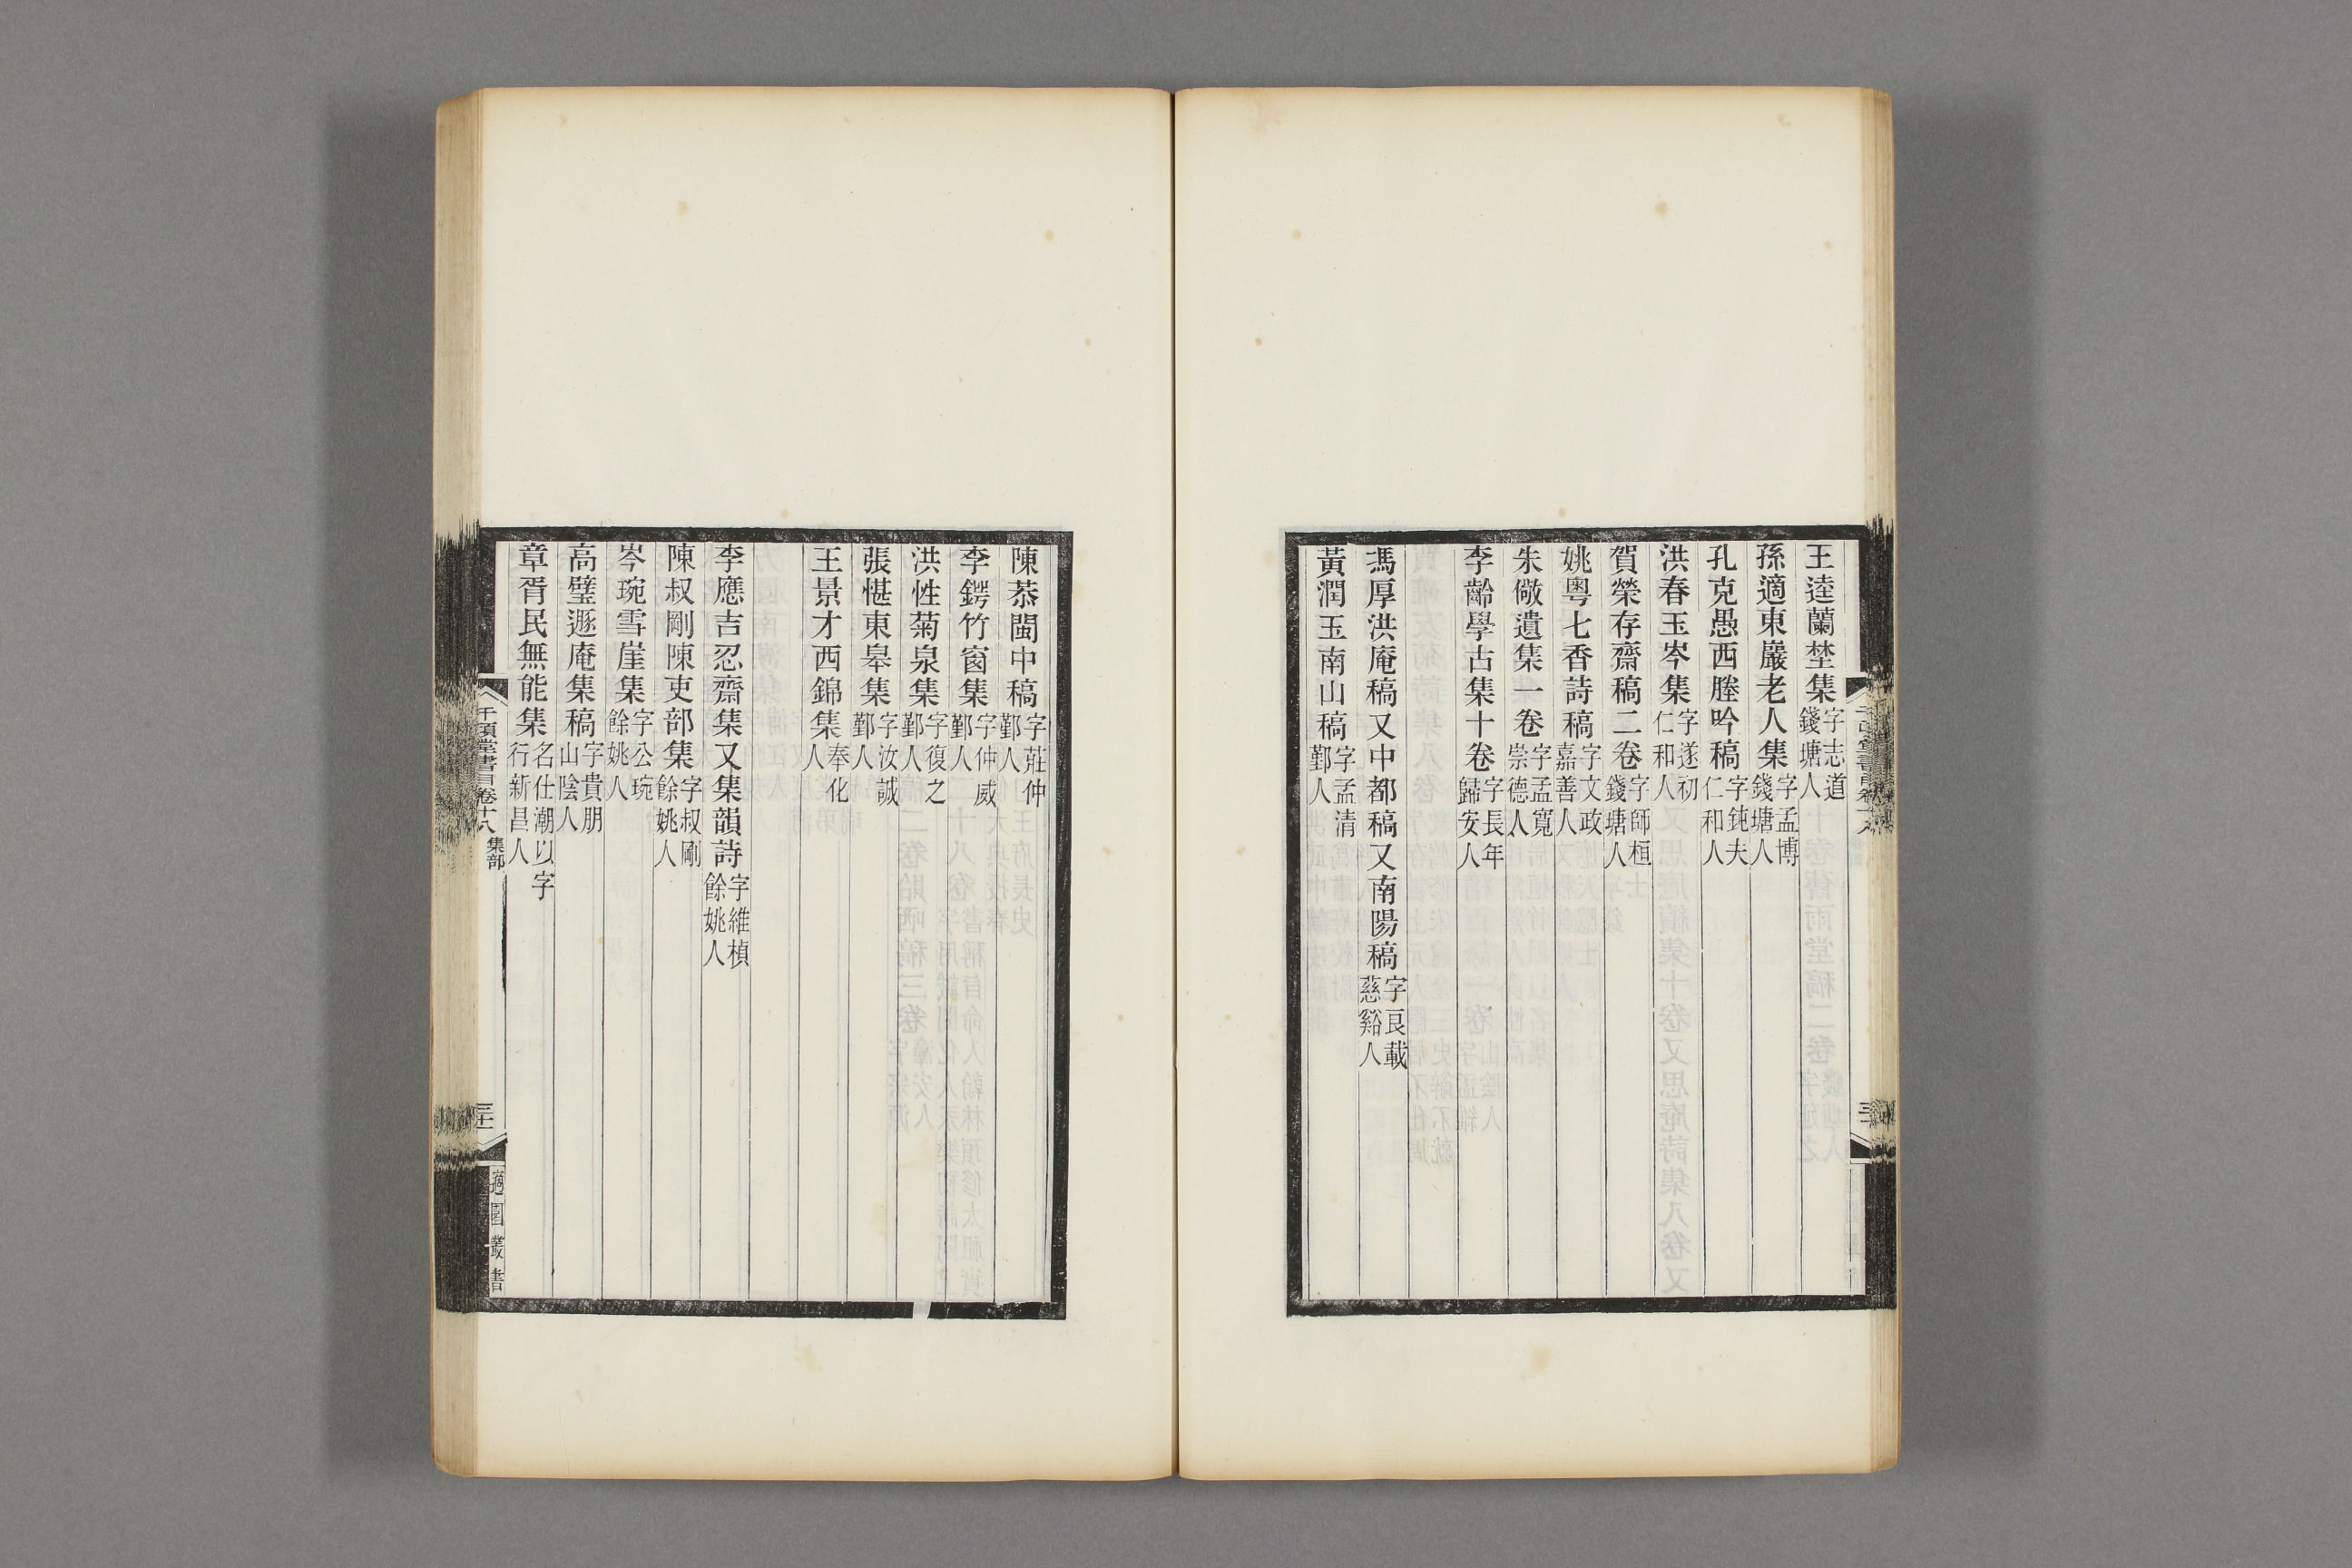 王逵蘭埜集字志道錢塘人
孫適東巖老人集字孟博錢塘人
孔克愚西塍吟稿字鈍夫仁和人
洪春玉岑集字遂初仁和人
賀榮存齋稿二卷字師桓錢塘人
姚粵七香詩稿字文政嘉善人
朱儆遺集一卷字孟寬崇德人
李齡學古集十卷字長年歸安人
馮厚洪庵稿又中都稿又南陽稿字良載慈谿人
黃潤玉南山稿字孟清鄞人
陳恭閩中稿字莊仲鄞人
李鍔竹窗集字仲威鄞人
洪性菊泉集字復之鄞人
張愖東皋集字汝誠鄞人
王景才西錦集奉化人
李應吉忍齋集又集韻詩字維楨餘姚人
陳叔剛陳吏部集字叔剛餘姚人
岑琬雪崖集字公琬餘姚人
高璧遯庵集稿字貴朋山陰人
章胥民無能集名仕潮以字行新昌人
千頃堂書目卷十八 集部
三十一
適園叢書